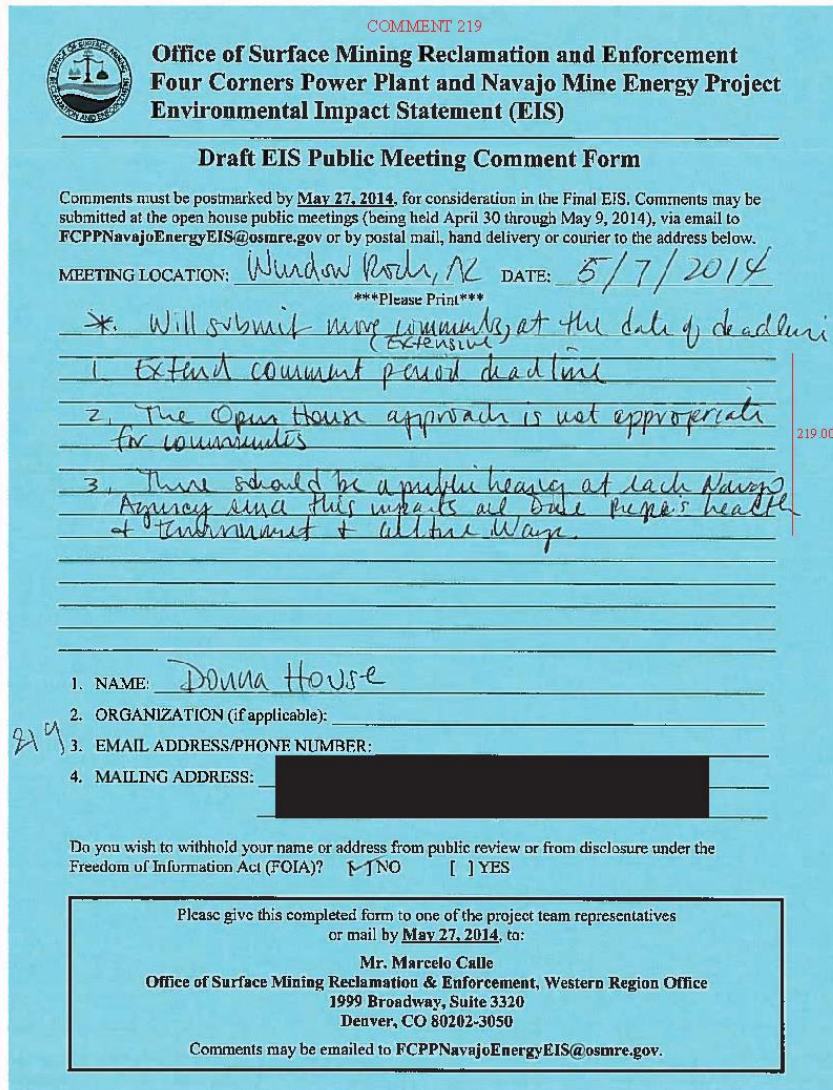 COMMENT 219
Office of Surface Mining Reclamation and Enforcement
Four Corners Power Plant and Navajo Mine Energy Project
Environmental Impact Statement (EIS)
Draft EIS Public Meeting Comment Form
Comments must be postmarked by May 27, 2014, for consideration in the Final EIS. Comments may be
submitted at the open house public meetings (being held April 30 through May 9, 2014), via email to
FCPPNavajoEnergyEIS@osmre.gov or by postal mail, hand delivery or courier to the address below.
MEETING LOCATION: Window Rock, AZ DATE: 5/7/2014
***Please Print***
*. Will submit more comments, at the date of deadline
(Extensive)
1. Extend comment period deadline
2. The Open House approach is not appropriate
for communities
219.00
3. There should be a public hearing at each Navajo
Agency since this impacts all Diné People's health
+ Environment + Culture Ways.
1. NAME: Donna House
2. ORGANIZATION (if applicable):
219
3. EMAIL ADDRESS/PHONE NUMBER:
4. MAILING ADDRESS:
Do you wish to withhold your name or address from public review or from disclosure under the
Freedom of Information Act (FOIA)? [✓] NO [ ] YES
Please give this completed form to one of the project team representatives
or mail by May 27, 2014, to:
Mr. Marcelo Calle
Office of Surface Mining Reclamation & Enforcement, Western Region Office
1999 Broadway, Suite 3320
Denver, CO 80202-3050
Comments may be emailed to FCPPNavajoEnergyEIS@osmre.gov.